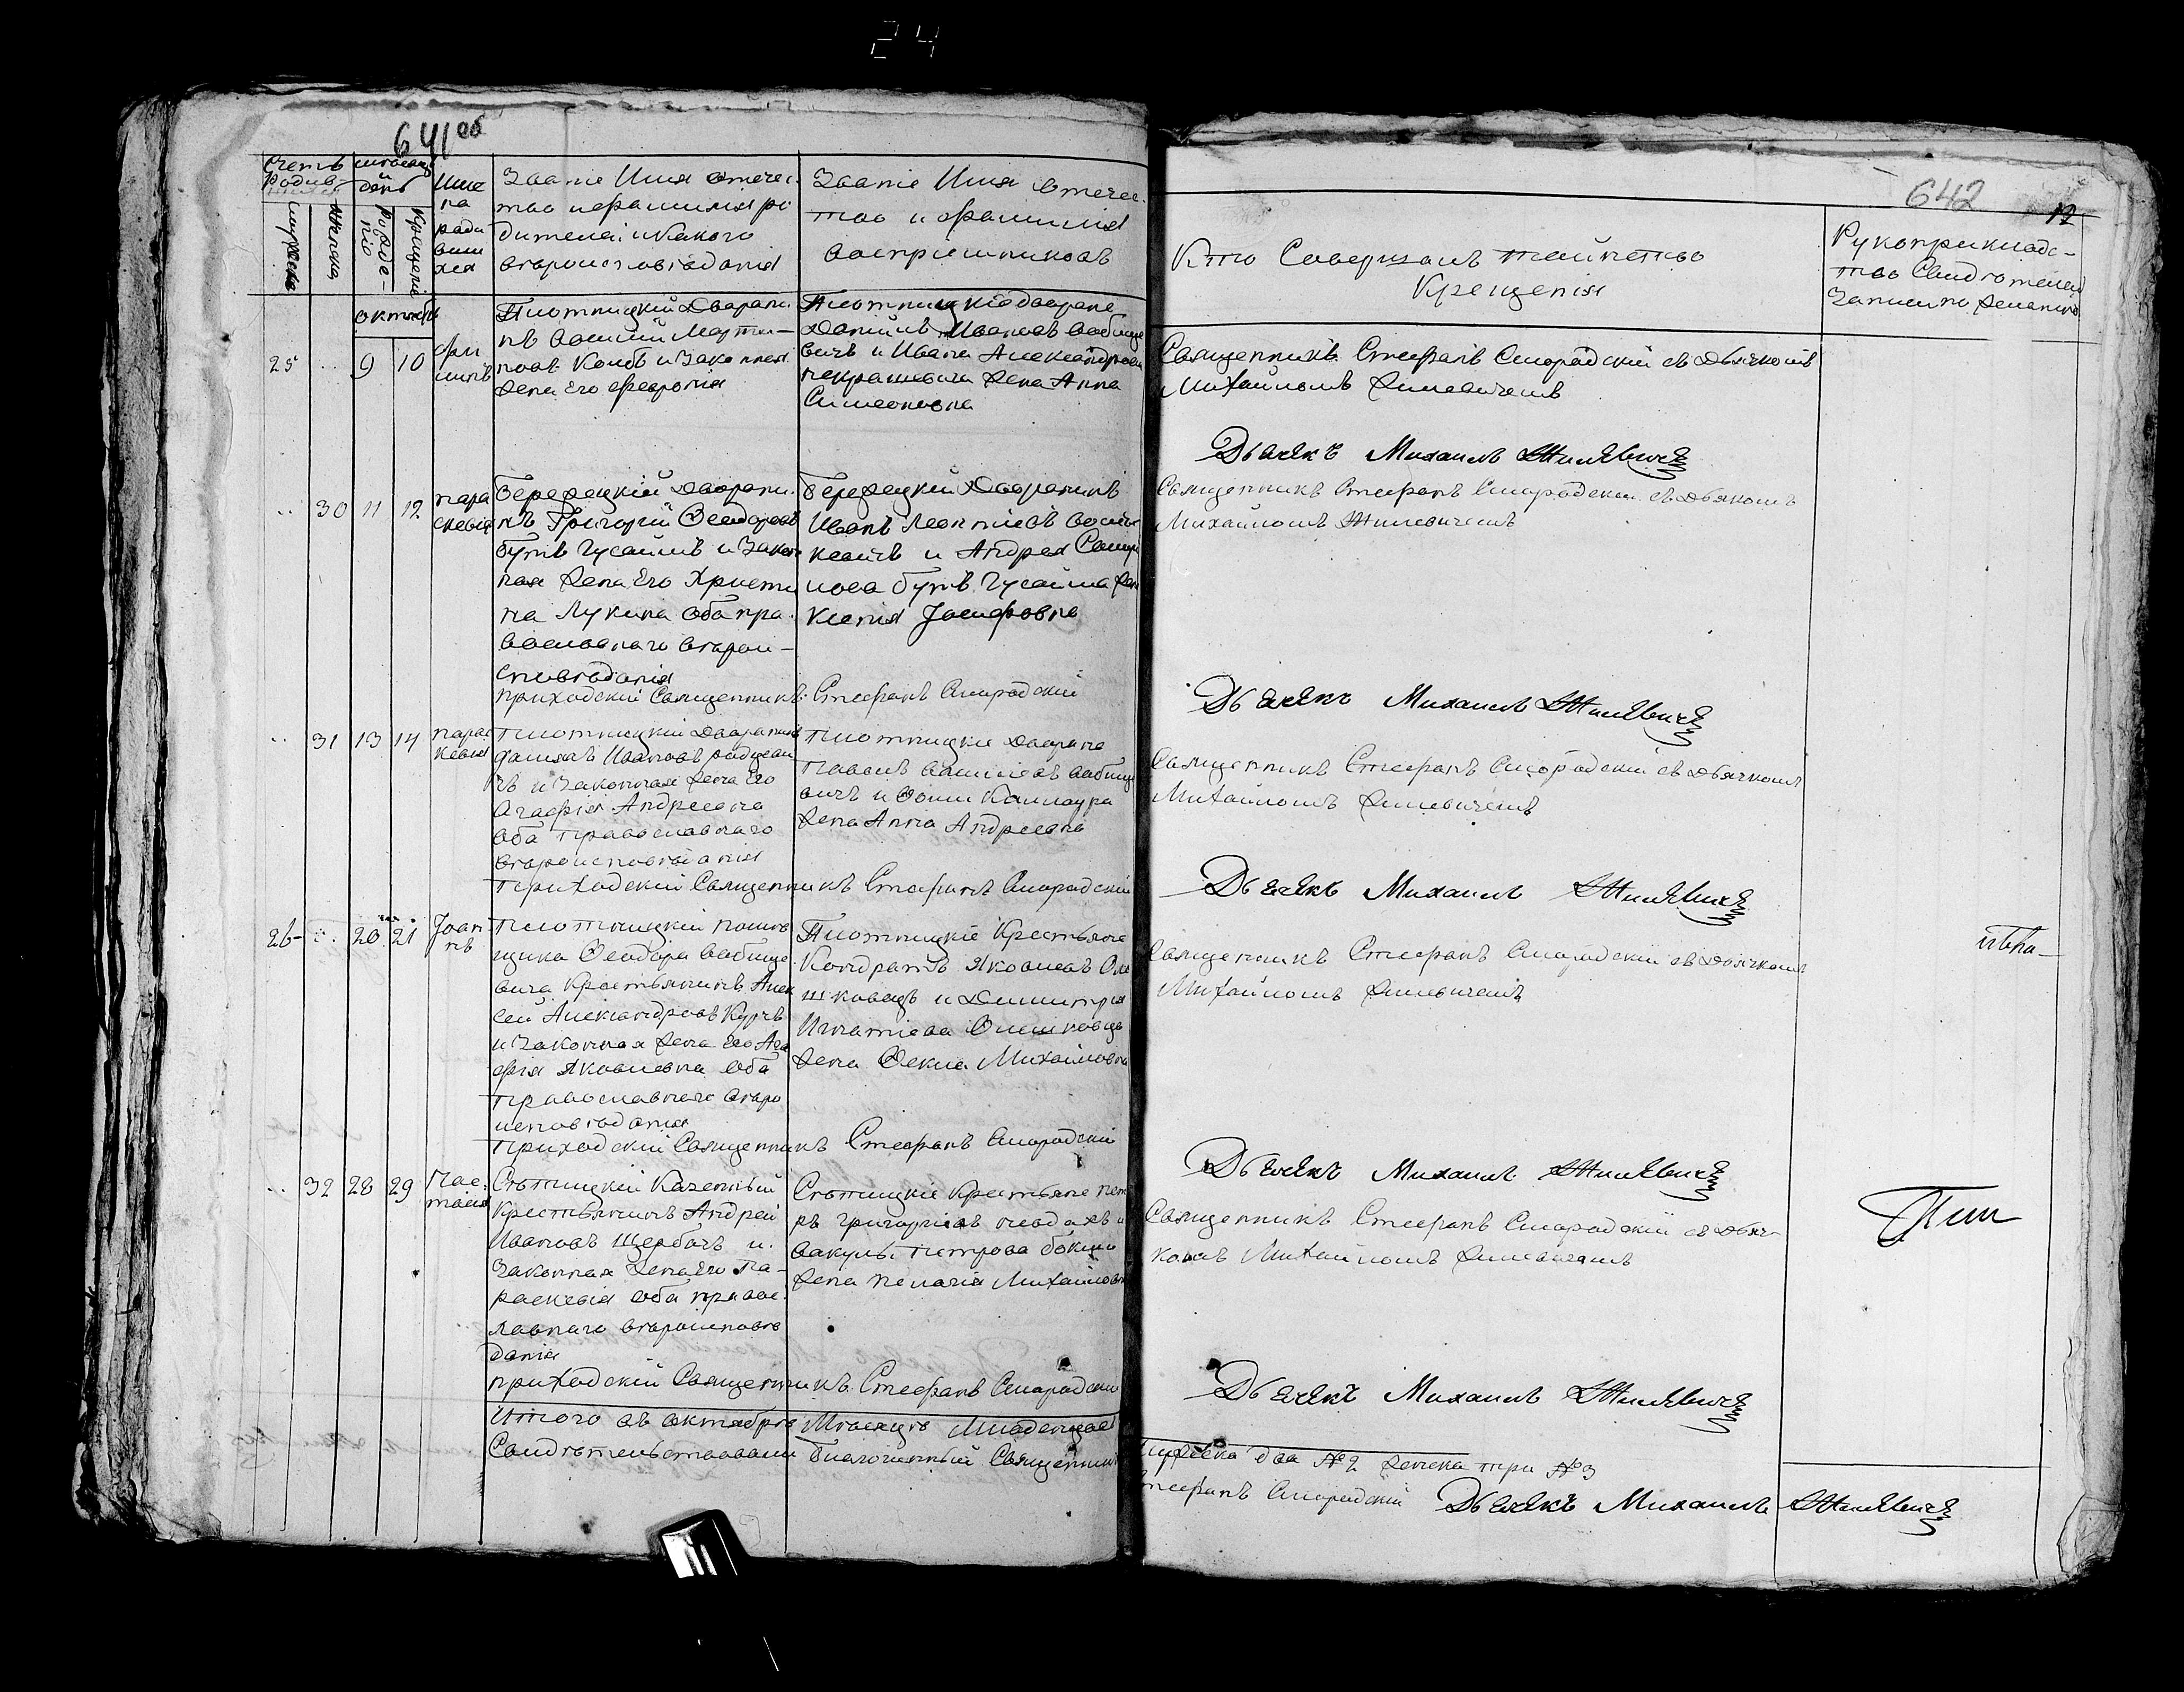 24
641 об
Счетъ
Родив-
шихся
мужеска
женска
месяцъ
и
день
рожде-
нiю
Крещенiе
Име
на
роди
вших
хся
Званiе Имя отечес.
тво и фамилiя ро
дителей и Какого
вероисповѣданiя
Званiе Имя отечес.
тво и фамилiя
воспрiемниковъ
октябрь
25 .. 9 10
фи
липъ
Плотницкiй Дворяни.
нъ Василiй Марти-
новъ Колбъ и Законная
жена Его Феврония
Плотницкiе дворяне
Данiилъ Ивановъ Вабище
вичъ и Ивана Александрова
некрашевича жена Анна
Симеоновна
.. 30 11 12
пара
скевiя
Бережецкiй Дворяни.
нъ Григорiй Ѳеодоровъ
бутъ Гусаимъ и Закон
ная жена Его Христи
на Лукина оба пра.
вославнаго вѣрои-
сповѣданiя
Бережецкiй Дворянинъ
Иванъ Леонтiевъ
и Андрея Самуи
лова бутъ Гусаима жен
Ксенiя Iосифовна
приходскiй Священникъ Стефанъ Смородскiй
.. 31 13 14
парас
кевiя
Плотницкiй Дворянинъ
Ивановъ
и Законная жена Его
Агафiя Андреевна
оба православнаго
вероисповѣданiя
Плотницкiе Дворяне
Павелъ Вабище
вичъ и Ѳомы Каллаура
жена Анна Андреевна
Приходскiй Священникъ Стефанъ Смородскiй
26 .. 20 21
Iоан
нъ
Плотницкiй помѣ
щика Ѳеодора Вабище.
вича Крестьянинъ Алек
сей Александровъ Курчъ
и Законная жена Его Ага
фiя Яковлевна оба
православнаго вѣро
исповѣданiя
Плотницкiе Крестьяне
Кондратъ Яковлевъ Оле
шкевецъ и Димитрiя
Игнатiева Олешковца
жена Ѳекла Михайловна
Приходскiй Священникъ Стефанъ Смородскiй
.. 32 28 29
Нас.
тасiя
Стытицкiй Казенный
Крестьянинъ Андрей
Ивановъ Щербачъ и.
Законная жена Его Па-
раскевiя оба правос.
лавнаго вѣроисповѣ
данiя
Стытицкiе Крестьяне Пет
ръ Григорiевъ и
Вакулы Петрова
жена Пелагiя Михайловна
приходскiй Священникъ Стефанъ Смородскiй
Итого въ октябрѣ Мѣсяцѣ Младенцовъ
Свидѣтельствовали Благочинный Священникъ
642
12
Кто Совершалъ таинство
Крещенiя
Рукоприкладс-
тво Свидѣтелей
Записи по желанiю
Священникъ Стефанъ Смородскiй съ Дьячкомъ
Михайломъ Жилевичемъ
Дьячекъ Михаилъ Жилевичъ
Священникъ Стефанъ Смородскiй съ Дьячкомъ
Михайломъ Жилевичемъ
Дьячекъ Михаилъ Жилевичъ
Священникъ Стефанъ Смородскiй съ Дьячкомъ
Михайломъ Жилевичемъ
Дьячекъ Михаилъ Жилевичъ
Священникъ Стефанъ Смородскiй съ Дьячкомъ
Михайломъ Жилевичемъ
Дьячекъ Михаилъ Жилевичъ
Священникъ Стефанъ Смородскiй съ Дьяч-
комъ Михайломъ Жилевичемъ
Дьячекъ Михаилъ Жилевичъ
мужеска два №2 женска три №3
Стефанъ Смородскiй Дьячекъ Михаилъ Жилевичъ